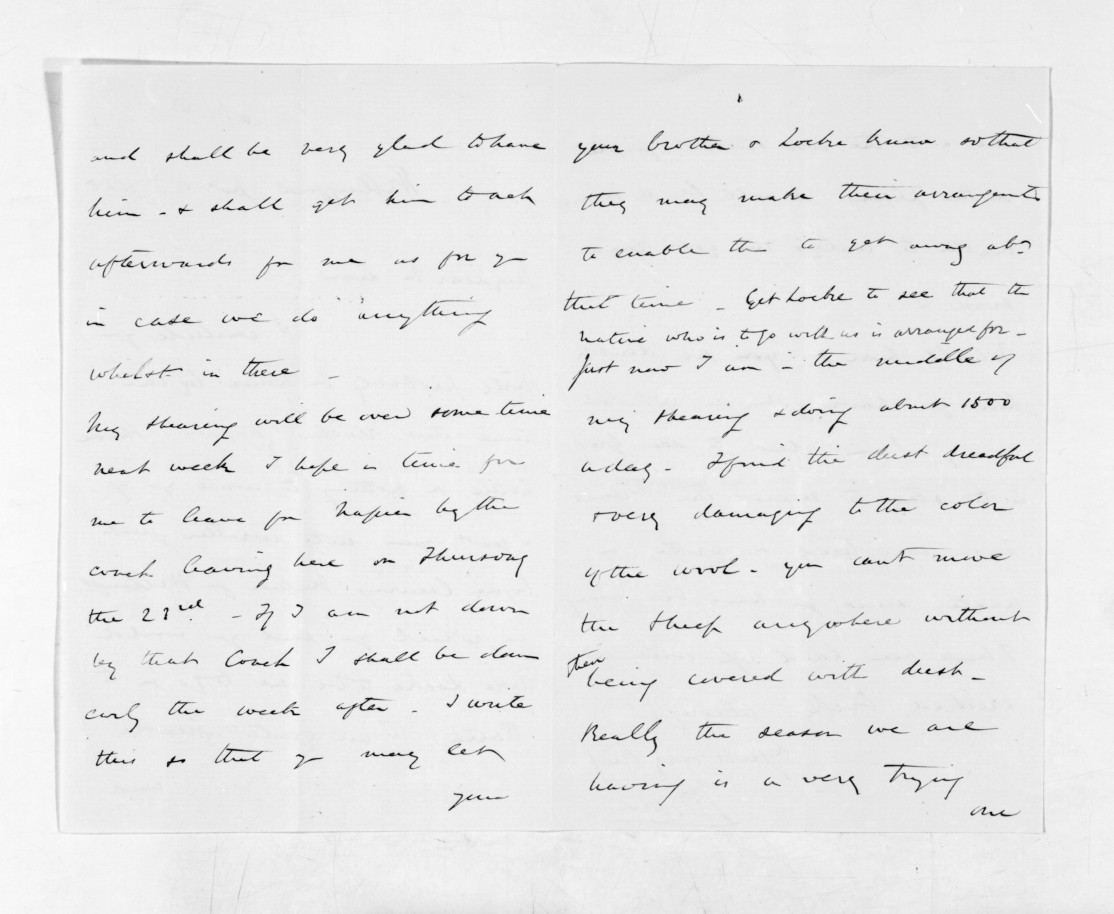 and shall be very glad to have
him - & shall get him to act
afterwards for me as for you
in case we do "anything"
whilst in there -
My shearing will be over some time
next week I hope in time for
me to leave for Napier by the
coach leaving here on Thursday
the 23rd. - If I am not down
by that Coach I shall be down
early the week after. I write
this so that you may let
your
your brother & Locke know so that
they may make their arrangemts
to enable them to get away abt
that time - Get Locke to see that the
native who is to go with us is arranged for -
Just now I am in the middle of
my shearing & doing about 1500
a day - I find the dust dreadful
& very damaging to the color
of the wool - you cant move
the sheep anywhere without
their being covered with dust -
Really the season we are
having is a very trying
one